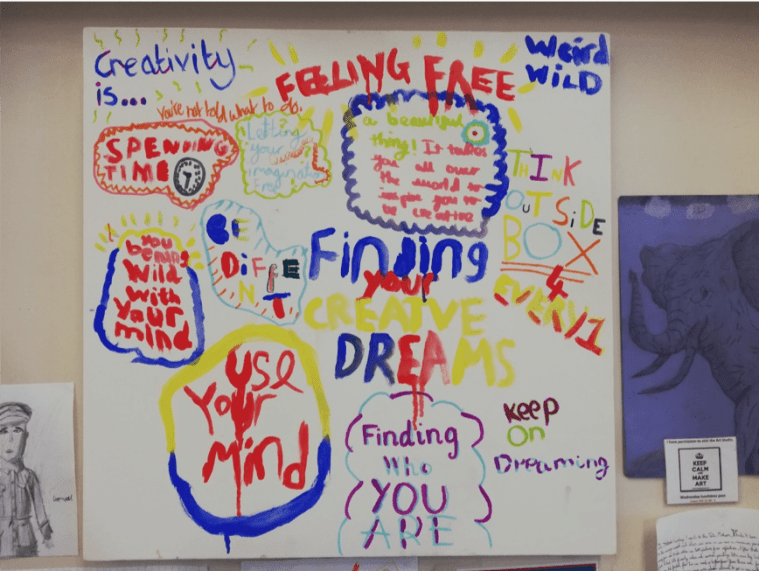 Creativity
is...
You're not told what to do.
SPENDING
TIME
Letting
your
imagination
Free
FEELING FREE
Weird
WiLD
a beautiful
thing! It takes
you all over
the world to
inspire you to
be creative
THINK
OUTSiDE
BOX
4
EVERY1
You
being
Wild
with
Your
mind
BE
DiFFE
NT
Finding
your
CREATVE
DREAMS
USe
Your
Mind
Finding
Who
YOU
ARE
Keep
On
Dreaming
KEEP
CALM
AND
MAKE
ART